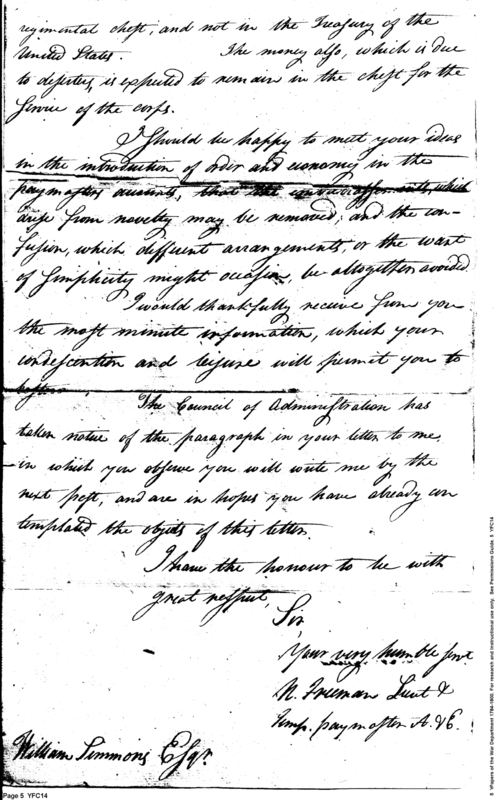 regimental chest, and not in the Treasury of the
United States. The money also, which is due
to deserters, is expected to remain in the chest for the
Service of the corps.
I should be happy to meet your ideas
in the introduction of order and economy in the
paymasters accounts, that the embarrassments, which
arise from novelty may be removed; and the con-
fusion, which different arrangements, or the want
of simplicity might occasion, be altogether avoided.
I would thankfully receive from you
the most minute information, which your
condescention and leisure will permit you to
bestow.
The Council of Administration has
taken notice of the paragraph in your letter to me,
in which you observe you will write me by the
next post, and are in hopes you have already con
templated the objects of this letter.
I have the honour to be with
great respect,
Sir
Your very humble servt
N. Freeman Lieut &
Temp. paymaster A. & E.
William Simmons Esqr.
Page 5 YFC14
Papers of the War Department 1784-1800. For research and instructional use only. See Permissions Guide. 5 YFC14